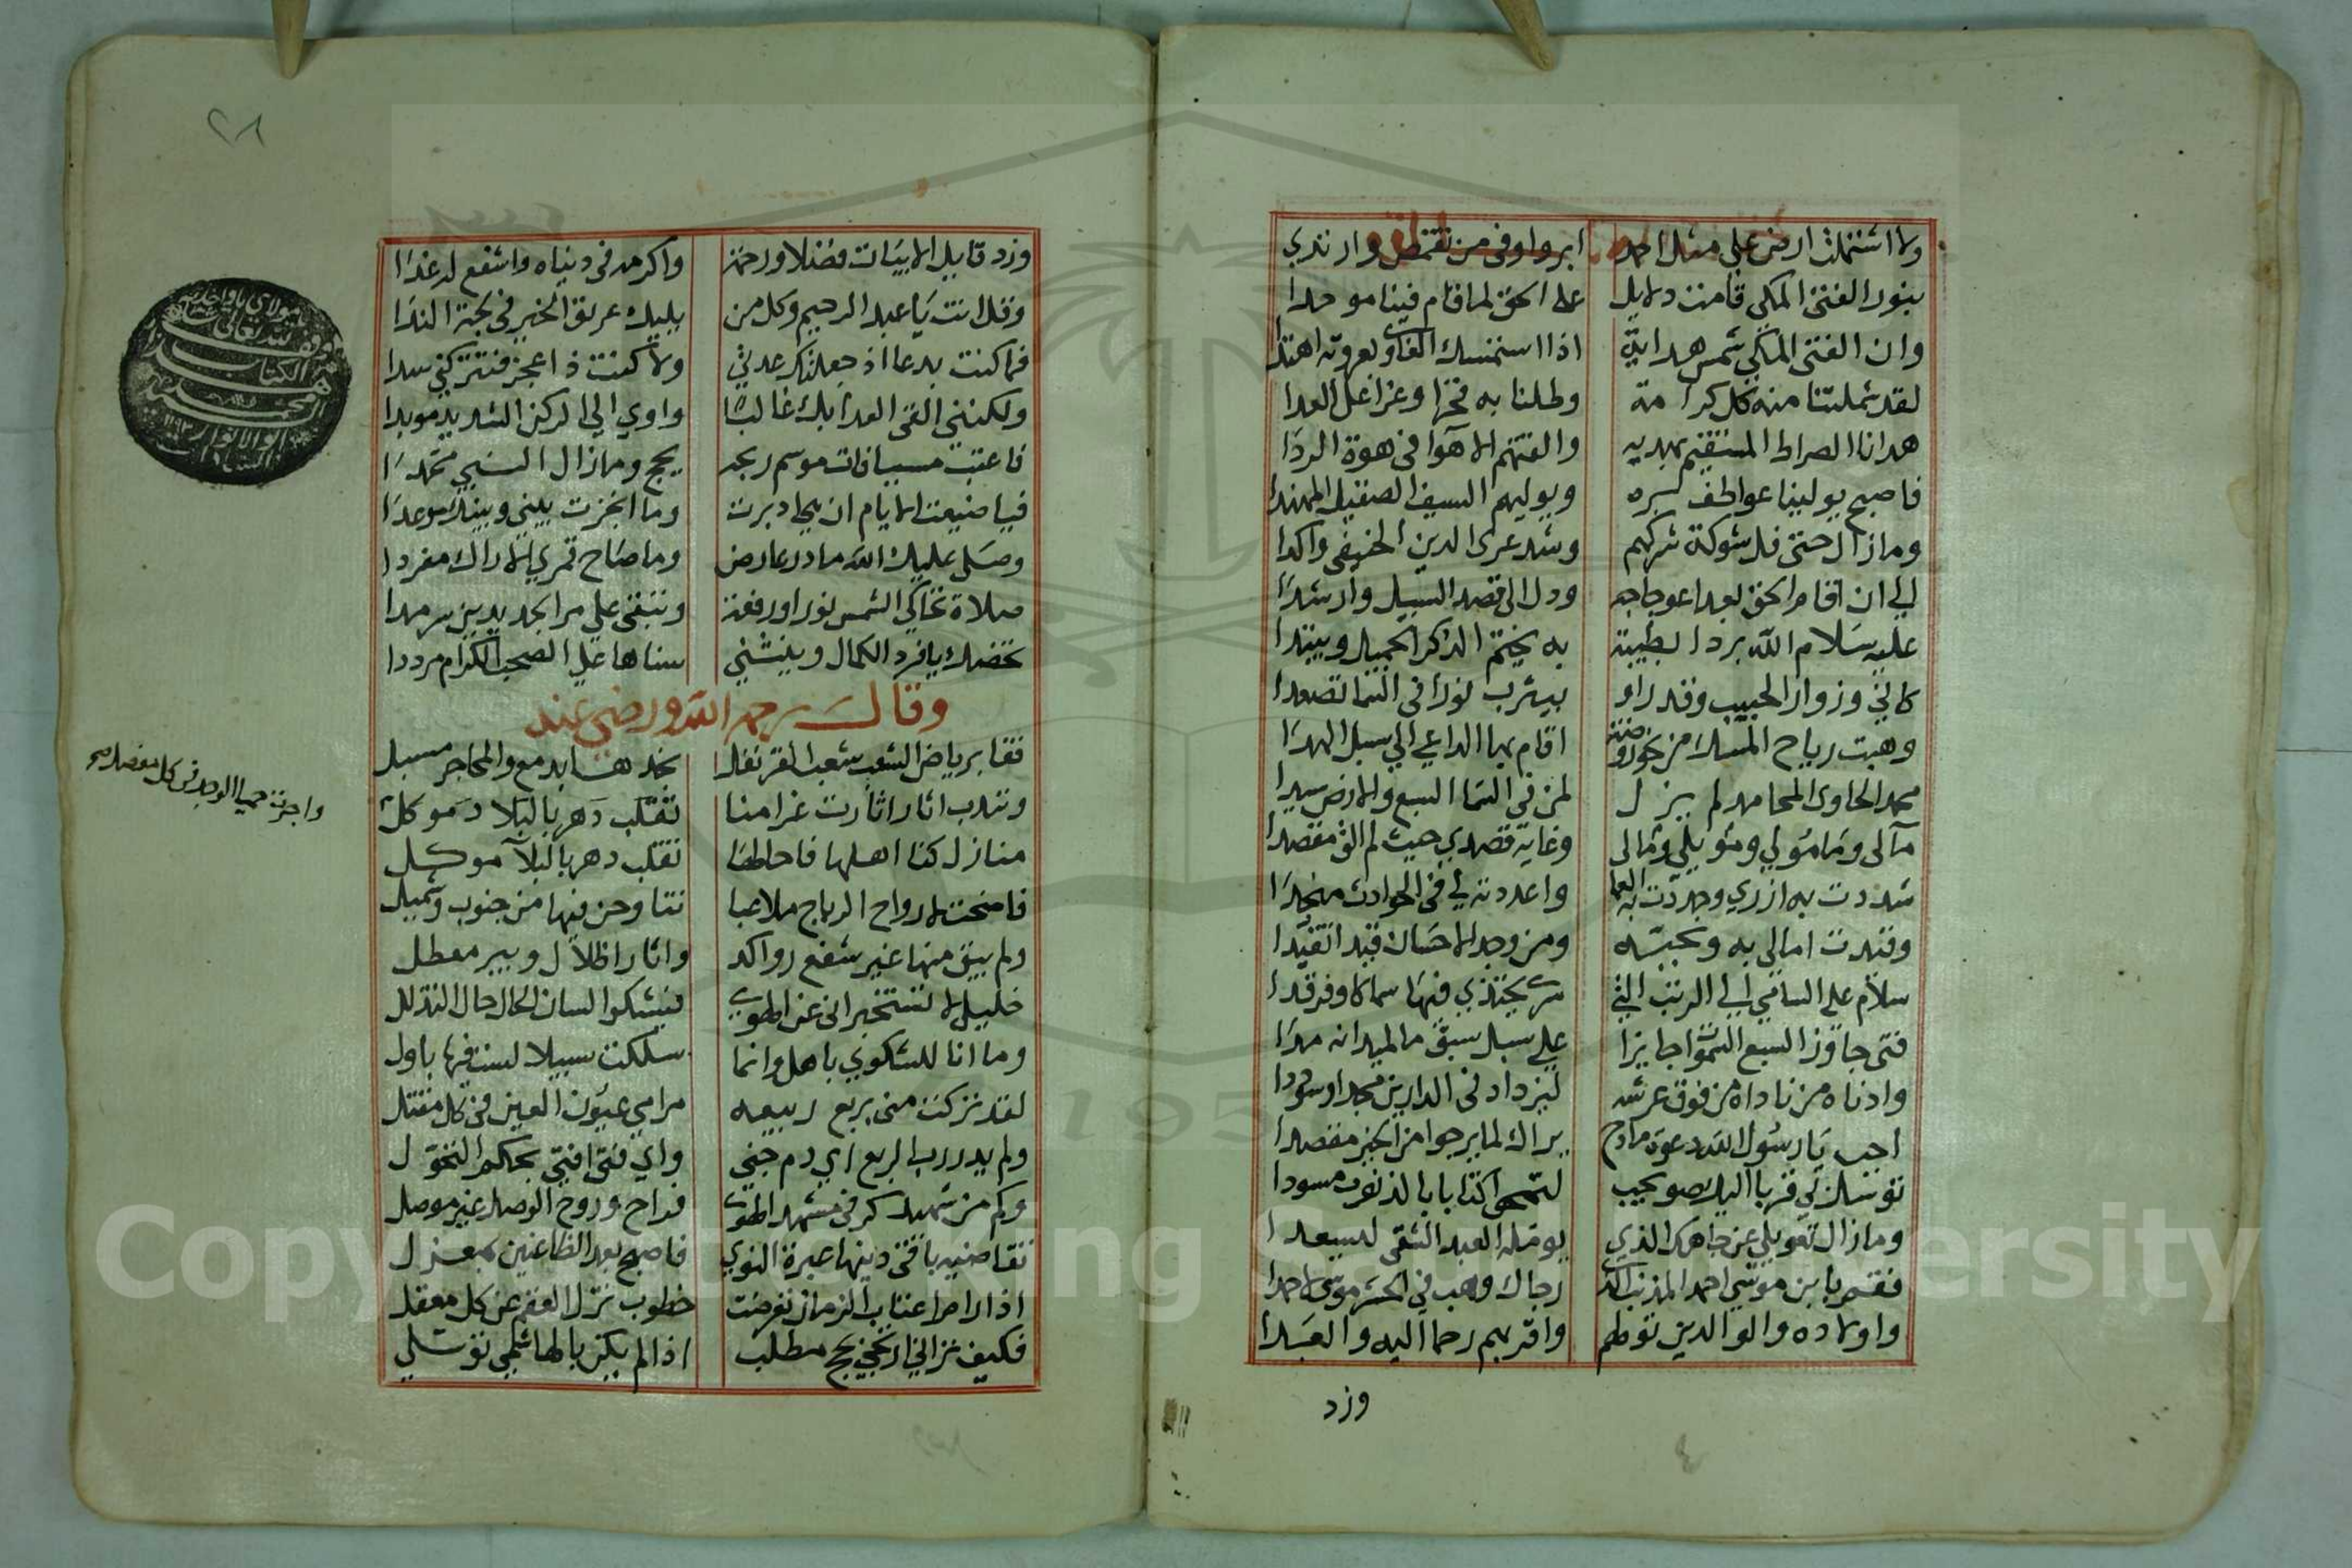 ولا اشتملت ارض على مثل احمد ابر واوفى من تقمص وارتدى
بنور الفتى المكي قامت دلايل على الحق لما قام فينا موحدا
وان الفتى المكي شمس هداية اذا استمسك الغاوي بعروته اهتدا
لقد شملتنا منه كل كرامة وطلنا به فخرا وعزا على العدا
هدانا الصراط المستقيم بهديه والقتهم الاهوآ في هوة الردا
فاصبح يولينا عواطف بره ويوليهم السيف الصقيل المهندا
ومازال حتى فل شوكة شركهم وشد عرى الدين الحنيفي واكدا
الي ان اقام الحق بعد اعوجاجه ودل الى قصد السبيل وارشدا
عليه سلام الله بردا بطيبة به يختم الذكر الجميل ويبتدا
كاني وزوار الحبيب وقد راو بيثرب نورا في السما تصعدا
وهبت رياح المسك من نحو روضة اقام بها الداعي الي سبل الهدا
محمد الحاوى المحامد لم يزل لمن في السما السبع والارض سيدا
مآلى ومامولي وموئلي وثمالى وغاية قصدي حيث لم الق مقصدا
شددت به ازري وجددت به واعددته لي في الحوادث منجدا
وقيدت امالى به وبحبه ومن وجد الاحسان قيدا تقيدا
سلام على السامي الي الرتب التي سماكا وفرقدا
فتى جاوز السبع السموا جايزا على سبل سبق ما لميدانه مدا
وادناه من ناداه من فوق عرشه ليزداد في الدارين مجدا وسوددا
اجب يا رسول الله دعوة مادح يراك لما يرجو من الخير مقصدا
توسل بي قربا اليك لتمحو كتابا بالذنوب مسودا
ومازال تعويلي عن جاهك الذي يومله العبد الشقى ليسعدا
فقم بابن موسى احمد المذنب رجاك وهب في الحشر موسى لاحمدا
واولاده والوالدين تولهم واقربهم رحما اليه والعبدا
وزد
٢٨
وزد قايل الابيات فضلا ورحمة واكرمه في دنياه واشفع له غدا
وقل انت يا عبد الرحيم وكل من يليك عريق الخير في لجة الندا
فما كنت بدعا اذ جعلتك عدتي ولا كنت ذا عجز فتتركني سدا
ولكنني القى العدا بك غالبا واوي الي الركن الشديد مويدا
فاعتب مسيا فات موسم ربحه يحج ومازال النبي محمدا
فيا ضيعت الايام ان هي ادبرت وما انجزت بيني وبينك موعدا
وصلى عليك الله ما در عارض وما صاح قمري الاراك مغردا
صلاة تحاكي الشمس نورا ورفعة وتبقى علي مر الجديدين سرمدا
تخصك يا فرد الكمال وينثني سناها على الصحب الكرام مرددا
وقال رحمه الله ورضي عنه
قفا برياض الشعب شعب القرنفل نجد بدمع والمحاجر مسبل
وتندب اثارا اثارت غرامنا تقلب دهر بالبلاد موكل
منازل كنا اهلها فاحاطها تقلب دهر بالبلآ موكل
فاضحت لارواح الرياح ملاعبا تناوحن فيها من جنوب وشميل
ولم يبق منها غير سفع رواكد واثار اظلال وبير معطل
خليلى لا تستخبراني عن الهوى فيشكوا لسان الحال حال التذلل
وما انا للشكوي باهل وانما سلكت سبيلا لست فيها باول
لقد تركت منى بربع ربيعه مرامي عيون العين في كل مقتل
ولم يدر رب الربع اي دم جني واي فتى افتى بحكم التحول
وكم من شهيد في مشهد الهوى فراح وروح الوصل غير موصل
تقاضيه باقى دينها عبرة النوي فاصبح بعد الظاعنين بمعزل
اذا لام اعتاب الزمان تعرضت خطوب تزل العفر عن كل معقل
فكيف تراني ارتجي نجح مطلب اذا لم يكن بالهاشمي توسلي